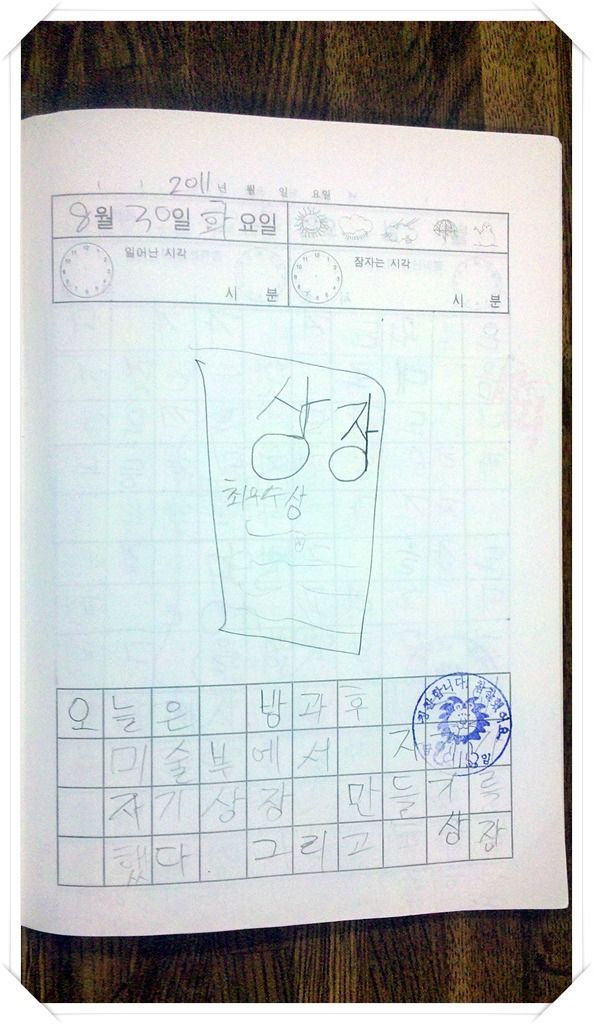 2011년 월 일 요일
8월 30일 화요일
일어난 시각
시 분
잠자는 시각
시 분
상장
최우수상
오늘은 방과후
미술부에서
자기상장 만들기를
했다. 그리고 상장
참 잘했어요